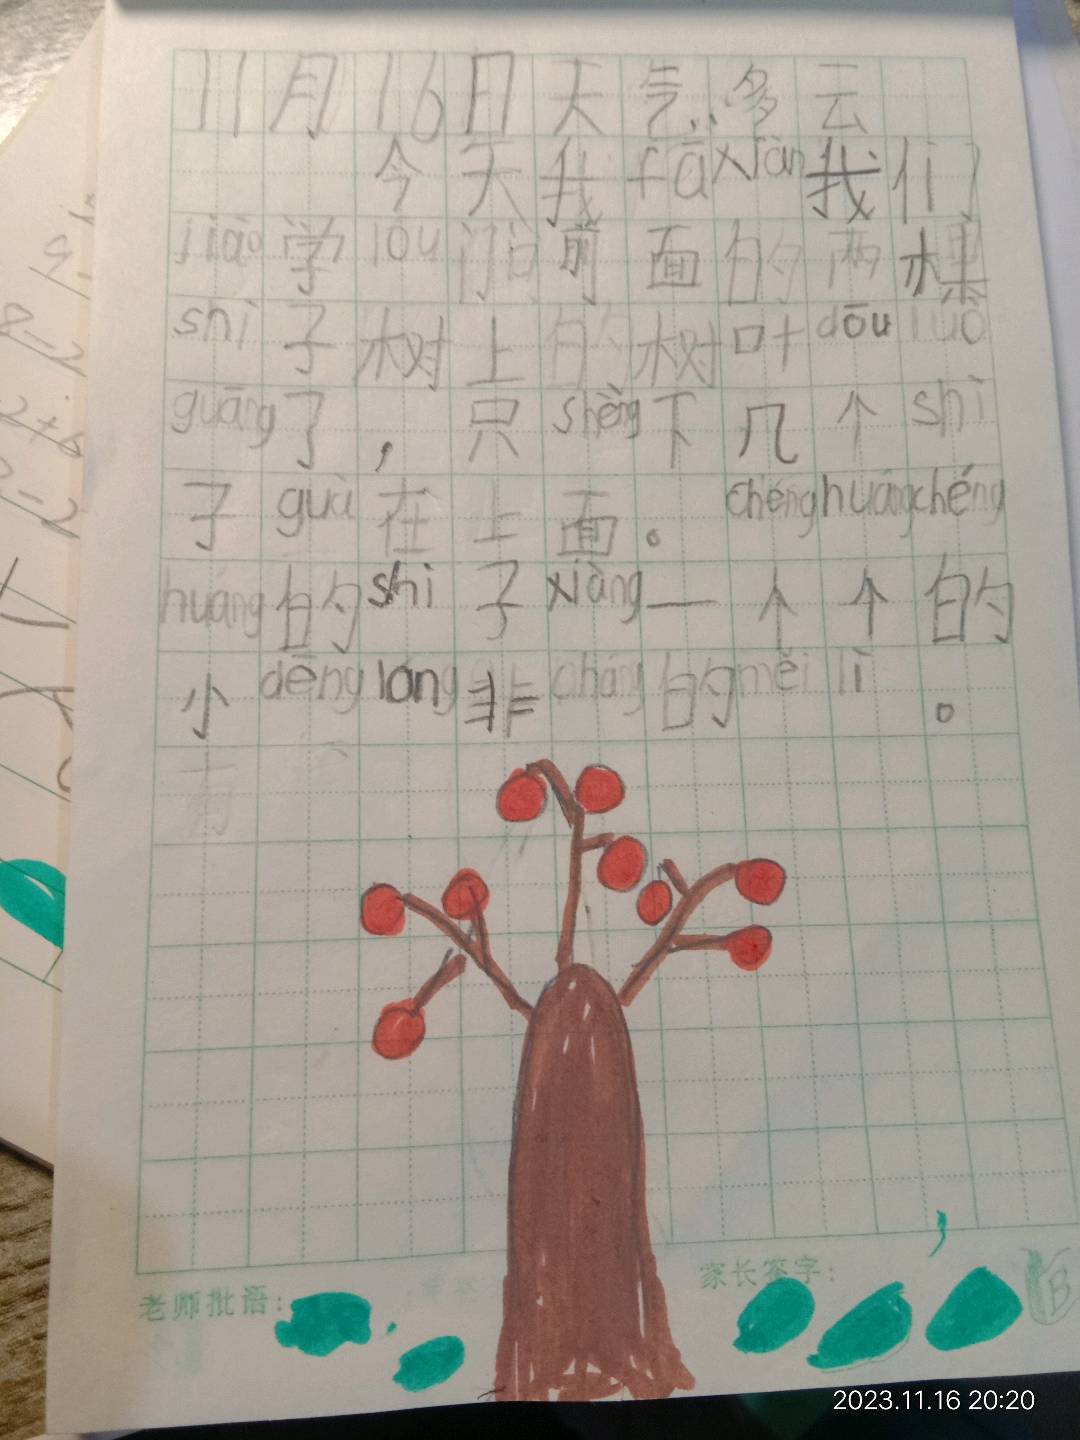 11月16日天气:多云
今天我fāxiàn我们
jiào学lóu门前面的两棵
shì子树上的树叶dōu luò
guāng了，只shèng下几个shì
子guà在上面。chénghuángchéng
huáng的shì子xiàng一个个的
小dēnglóng非cháng的měi lì。
老师批语:
家长签字:
2023.11.16 20:20